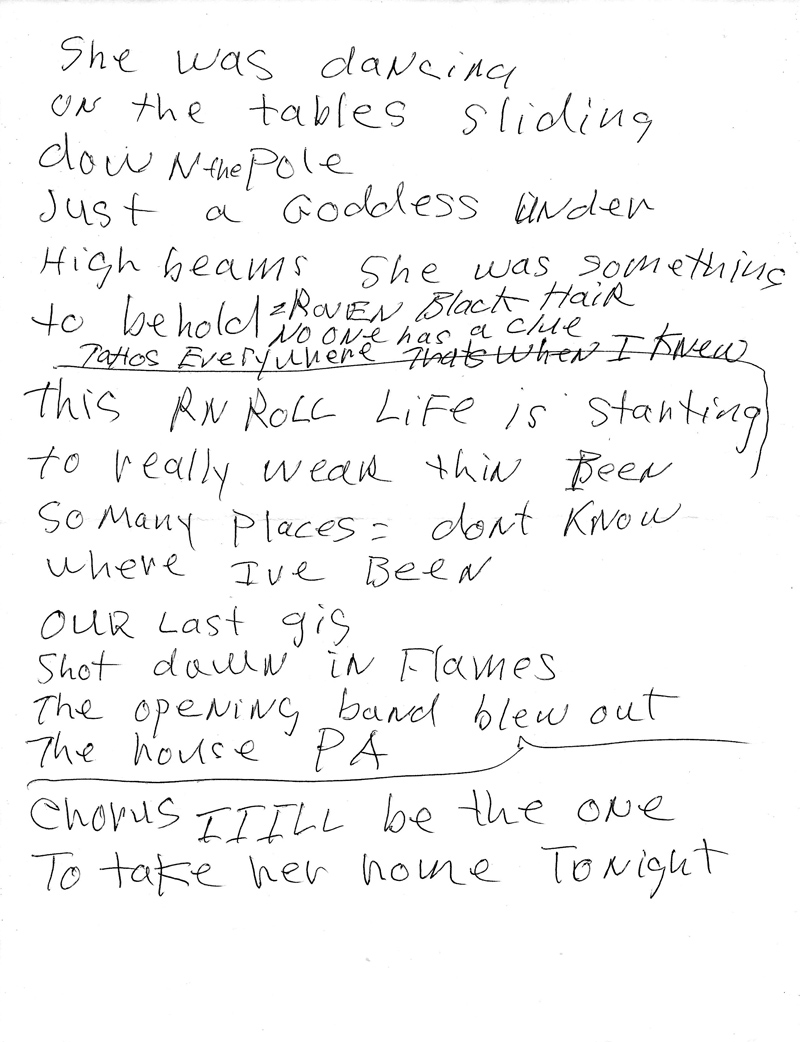 She was dancing
ON the tables sliding
dowN the Pole
Just a Goddess UNder
High beams She was something
to behold = RovEN Black HaiR
NO ONE has a clue
Tattos EveryWhere Thats When I KNew
this RN ROLL LiFe is starting
to really weaR thiN BeeN
So MaNy Places = dont KNow
where Ive BeeN
OUR Last gig
Shot dowN iN Flames
The opeNiNg band blew out
The house PA
Chorus IIILL be the oNe
To take her home ToNight